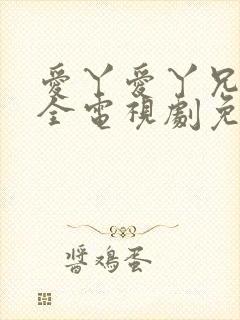 愛丫愛丫兄
全電視劇免
醬鸡蛋